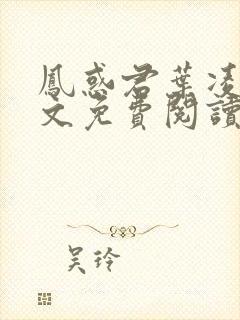 鳳惑君葉凌
文免費閱讀
吴玲